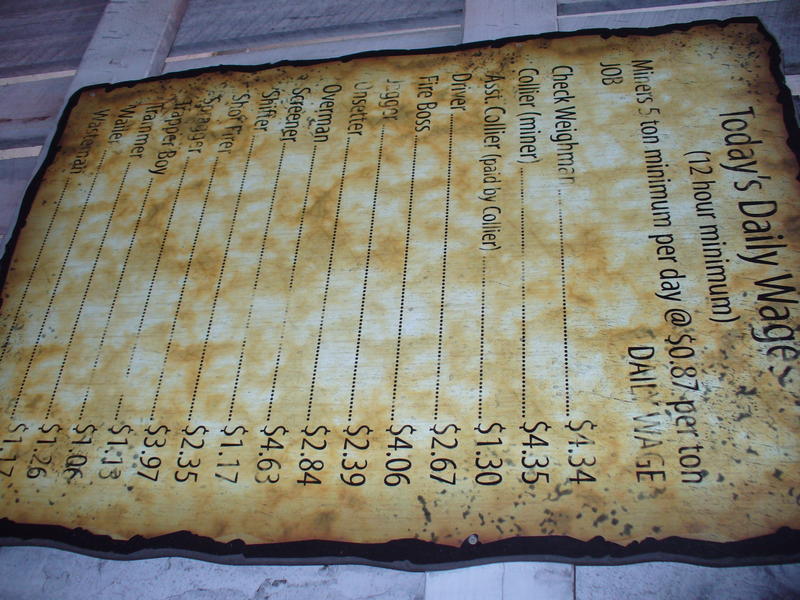 Today's Daily Wages
(12 hour minimum)
Miners 5 ton minimum per day @ $0.87 per ton
JOB DAILY WAGE
Check Weighman $4.34
Collier (miner) $4.35
Asst. Collier (paid by Collier) $1.30
Driver $2.67
Fire Boss $4.06
$2.39
Onsetter $2.84
Overman $4.63
Screener $1.17
Shifter $2.35
Shot Firer $3.97
Spragger $1.13
Trapper Boy $1.06
Trammer $1.26
Wailer $1.17
Wasteman